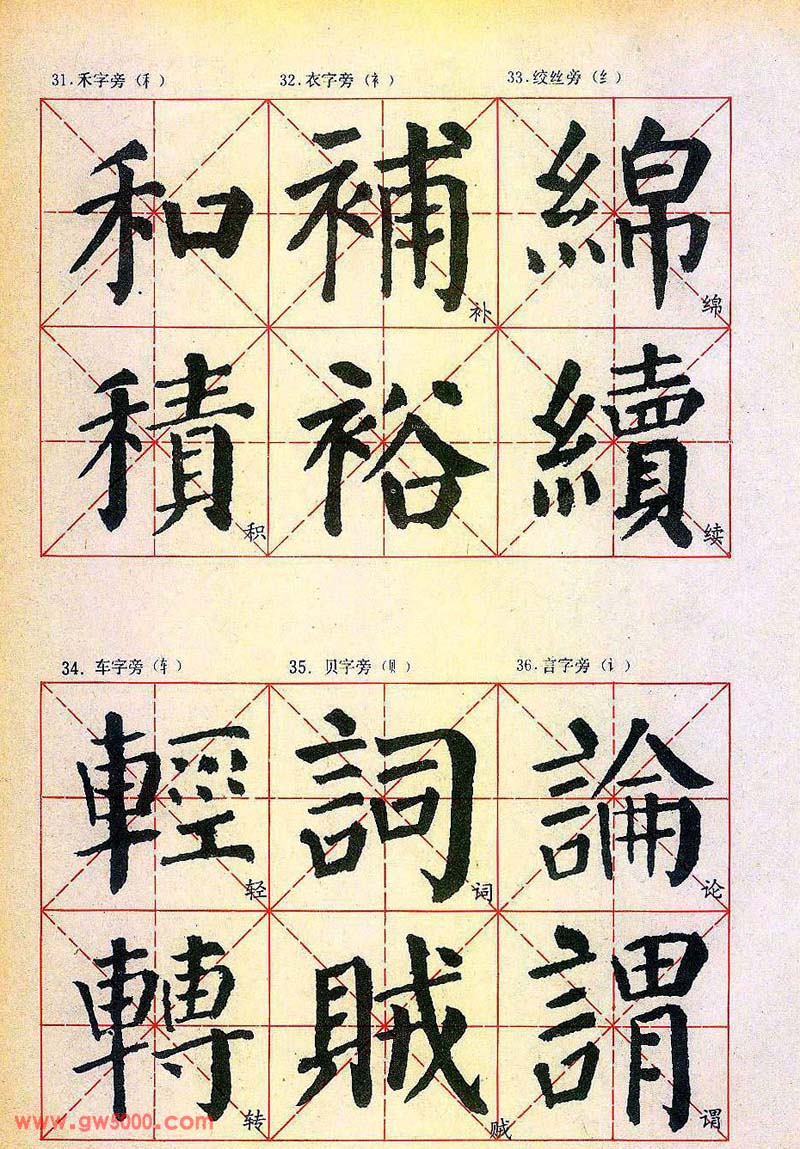 31.禾字旁（禾） 32.衣字旁（衤） 33.绞丝旁（纟）
和 補 綿
补 绵
積 裕 續
积 续
34. 车字旁（车） 35. 贝字旁（贝） 36.言字旁（讠）
輕 詞 論
轻 词 论
轉 賊 謂
转 贼 谓
www.gw5000.com